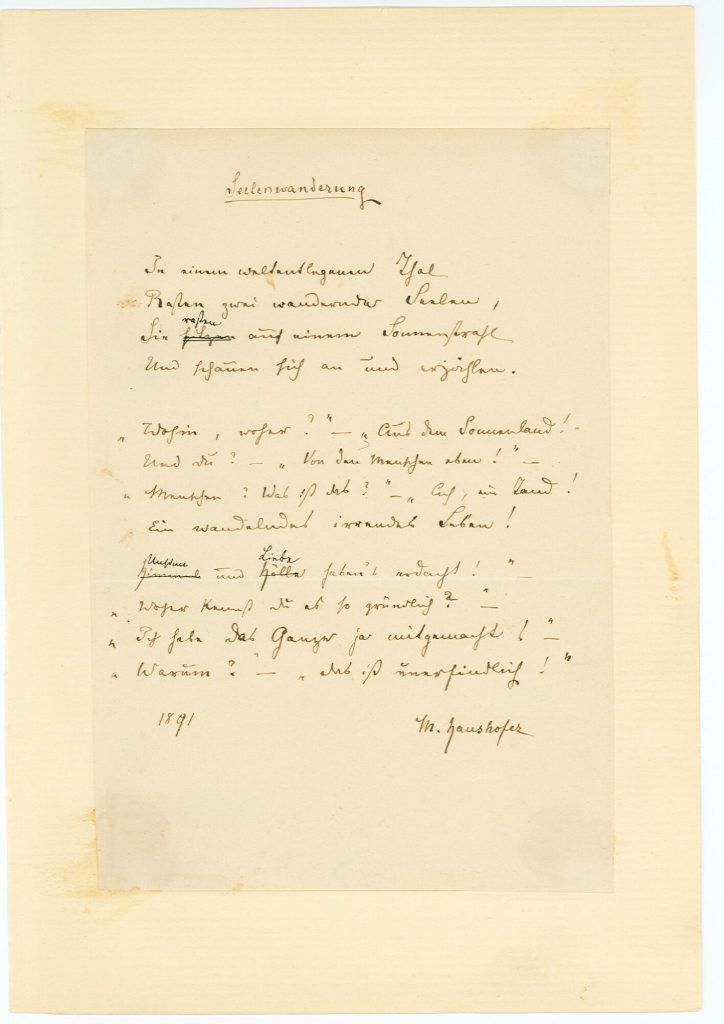 Seelenwanderung
In einem weltentlegenen Thal
Rasten zwei wandernde Seelen,
rasten
Sie sitzen auf einem Sonnenstrahl
Und schauen sich an und erzählen.
„Wohin, woher?" — „Aus dem Sonnenland! -
Und du? — „Von den Menschen eben!" —
„Menschen? Was ist das?" — „Ach, ein Tand!
Ein wandelndes irrendes Leben!
Liebe
Himmel und Hölle haben's erdacht!" —
„Woher kennst du es so gründlich?" —
„Ich habe das Ganze ja mitgemacht!" —
„Warum?" — „das ist unerfindlich!"
1891 M. Haushofer